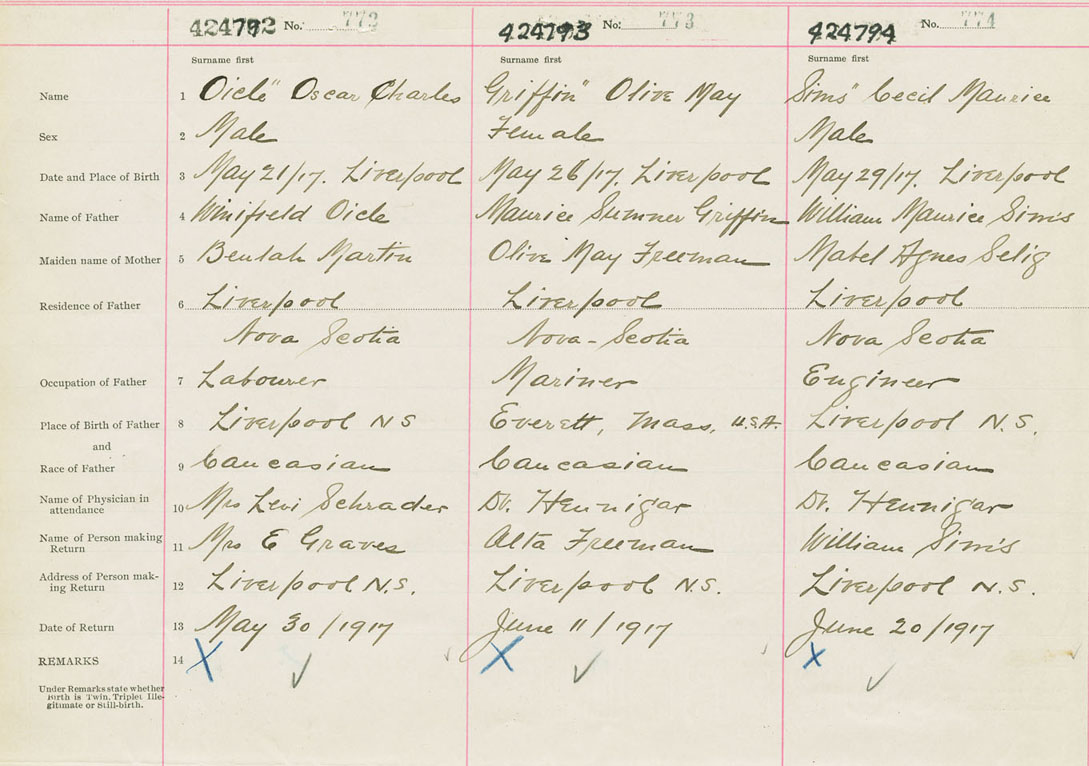 424792 No. 772 424793 No. 773 424794 No. 774
Surname first Surname first Surname first
Name 1 Oicle" Oscar Charles Griffin" Olive May Sims" Cecil Maurice
Sex 2 Male Female Male
Date and Place of Birth 3 May 21/17. Liverpool May 26/17. Liverpool May 29/17. Liverpool
Name of Father 4 Winifield Oicle Maurice Sumner Griffin William Maurice Sims
Maiden name of Mother 5 Beulah Martin Olive May Freeman Mabel Agnes Selig
Residence of Father 6 Liverpool Liverpool Liverpool
Nova Scotia Nova-Scotia Nova Scotia
Occupation of Father 7 Labourer Mariner Engineer
Place of Birth of Father 8 Liverpool N S Everett, Mass, U.S.A. Liverpool N.S.
and
Race of Father 9 Caucasian Caucasian Caucasian
Name of Physician in
attendance 10 Mrs Levi Schrader Dr. Hennigar Dr. Hennigar
Name of Person making
Return 11 Mrs E Graves Alta Freeman William Sims
Address of Person mak-
ing Return 12 Liverpool N.S. Liverpool N.S. Liverpool N.S.
Date of Return 13 May 30/1917 June 11/1917 June 20/1917
REMARKS 14 X X X
Under Remarks state whether
Birth is Twin, Triplet Ille-
gitimate or Still-birth.